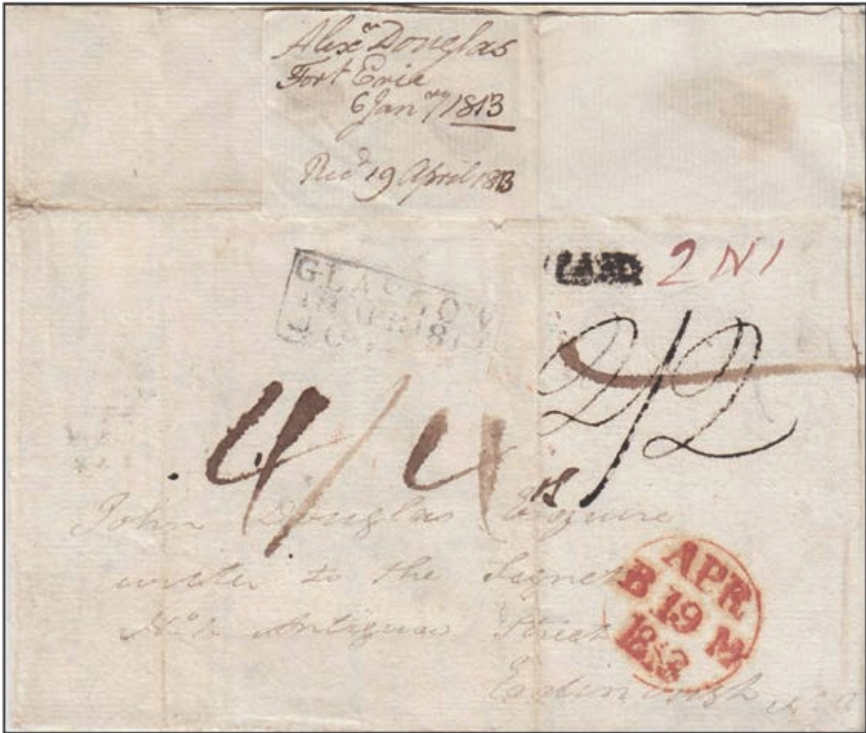 Alexr Douglas
Fort Erie
6 Janry 1813
Recd 19 April 1813
GLASGOW
APR 18
2 N 1
2/2
4/4
John Douglas Esquire
writer to the Signet
Antigua Street
Edinburgh
APR
B 19 M
1813